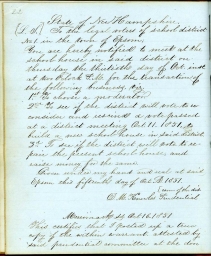 State of New Hampshire,
[L.S.] To the legal voters of school district
No. 1 in the town of Epsom
You are hereby notified to meet at the
school house in said district on
Thursday the thirtieth day of Oct. inst
at six o'clock P.M. for the transaction of
the following business, Viz.
1st To choose a moderator.
2d To see if the district will vote to re
consider and rescind a vote passed
at a district meeting Oct. 11, 1851, to
build a new school house in said district
3d To see if the district will vote to re
pair the present school house and
raise money for the same.
Given under my hand and seal at said
Epsom this fifteenth day of Oct. 1851.
D.M. Knowles Prudential
Oct. 16, 1851
This certifies that I posted up a true
copy of the within warrant attested by
said prudential committee at the